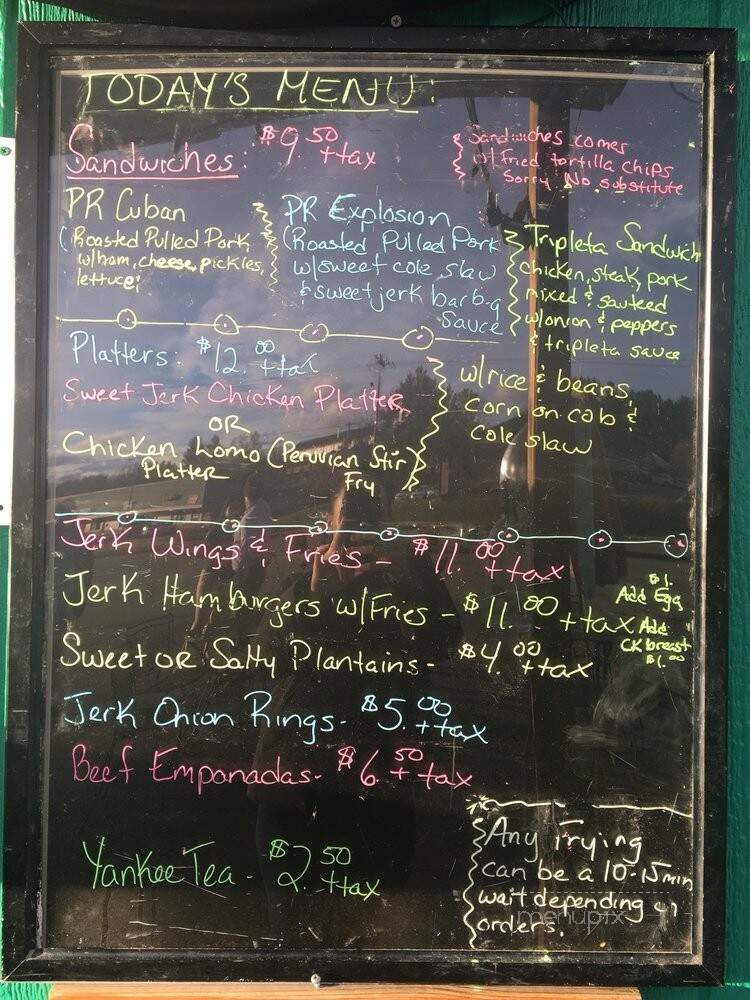 TODAY'S MENU:
Sandwiches: $9.50 +tax
Sandwiches comes
w/ Fried tortilla chips
Sorry No substitute
PR Cuban
(Roasted Pulled Pork
w/ham, cheese, pickles,
lettuce;
PR Explosion
(Roasted Pulled Pork
w/sweet cole slaw
& sweet jerk barb-q
Sauce
Tripleta Sandwich
chicken, steak, pork
mixed & sauteed
w/onion & peppers
& tripleta sauce
Platters: $12.00 +tax
Sweet Jerk Chicken Platter
OR
Chicken Lomo (Peruvian Stir
Platter Fry
w/rice & beans,
corn on cob &
cole slaw
Jerk Wings & Fries - $11.00 +tax
Jerk Hamburgers w/Fries - $11.00 +tax
$1.
Add Egg
Add
CK breast
$1.00
Sweet or Salty Plantains - $4.00 +tax
Jerk Onion Rings - $5.00 +tax
Beef Emponadas - $6.50 + tax
Yankee Tea - $2.50 +tax
Any Frying
can be a 10-15 min
wait depending on
orders.
menupix